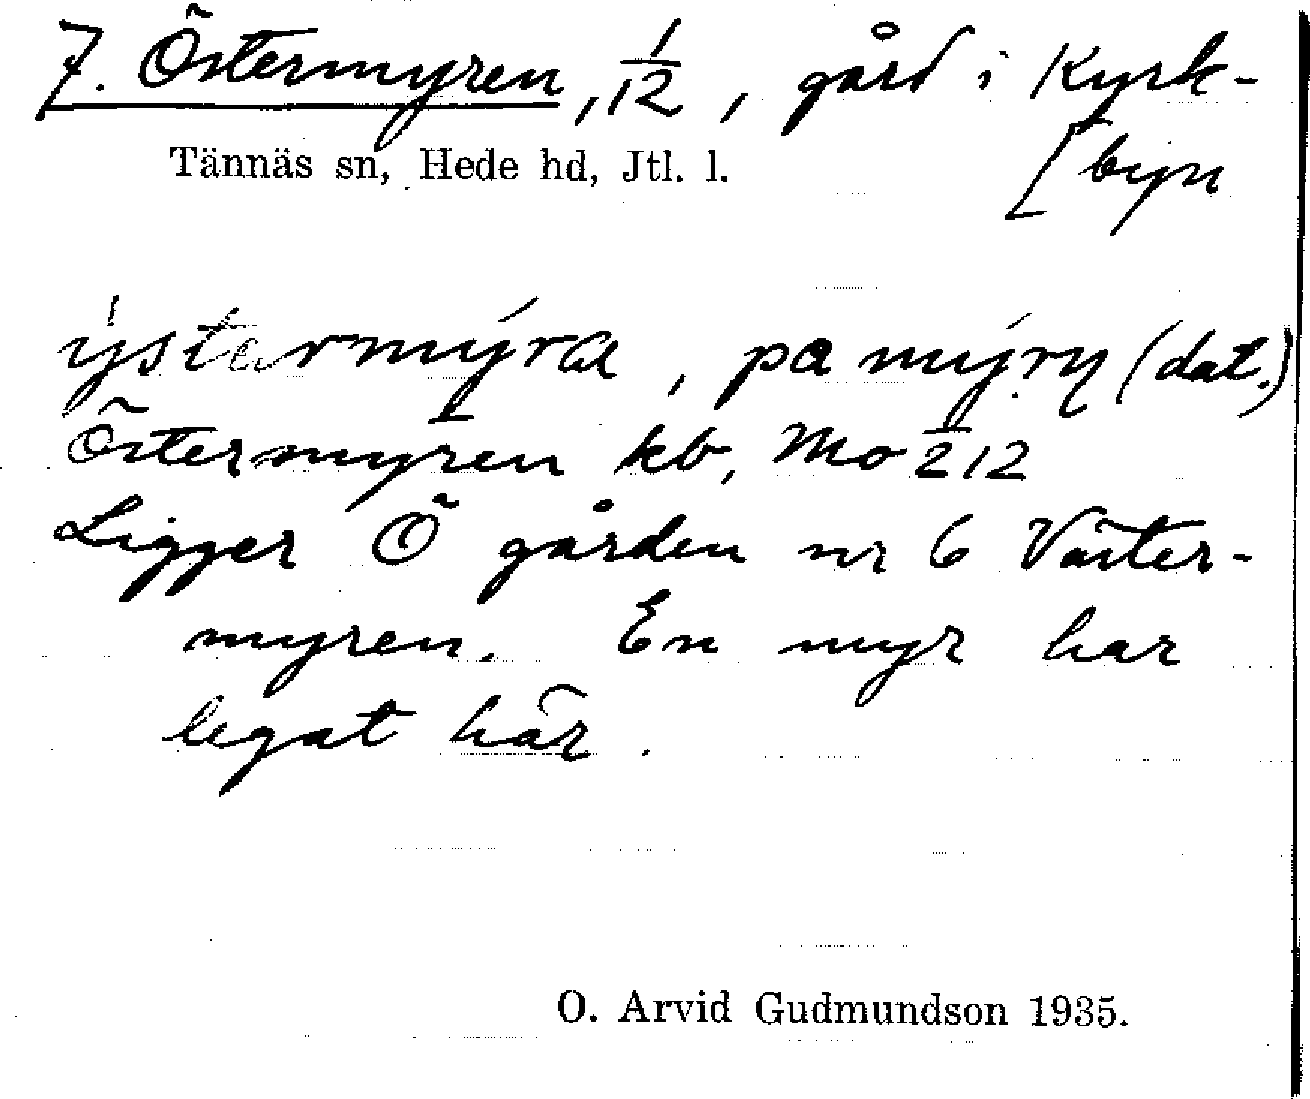 7. Östermyren, 1/12, gård i Kyrk-
[byn
Tännäs sn, Hede hd, Jtl. l.
ýstermýra, pa mýrn (dat.)
Östermyren kb, Mo 212
Ligger Ö gården nr 6 Väster-
myren. En myr har
legat här.
O. Arvid Gudmundson 1935.